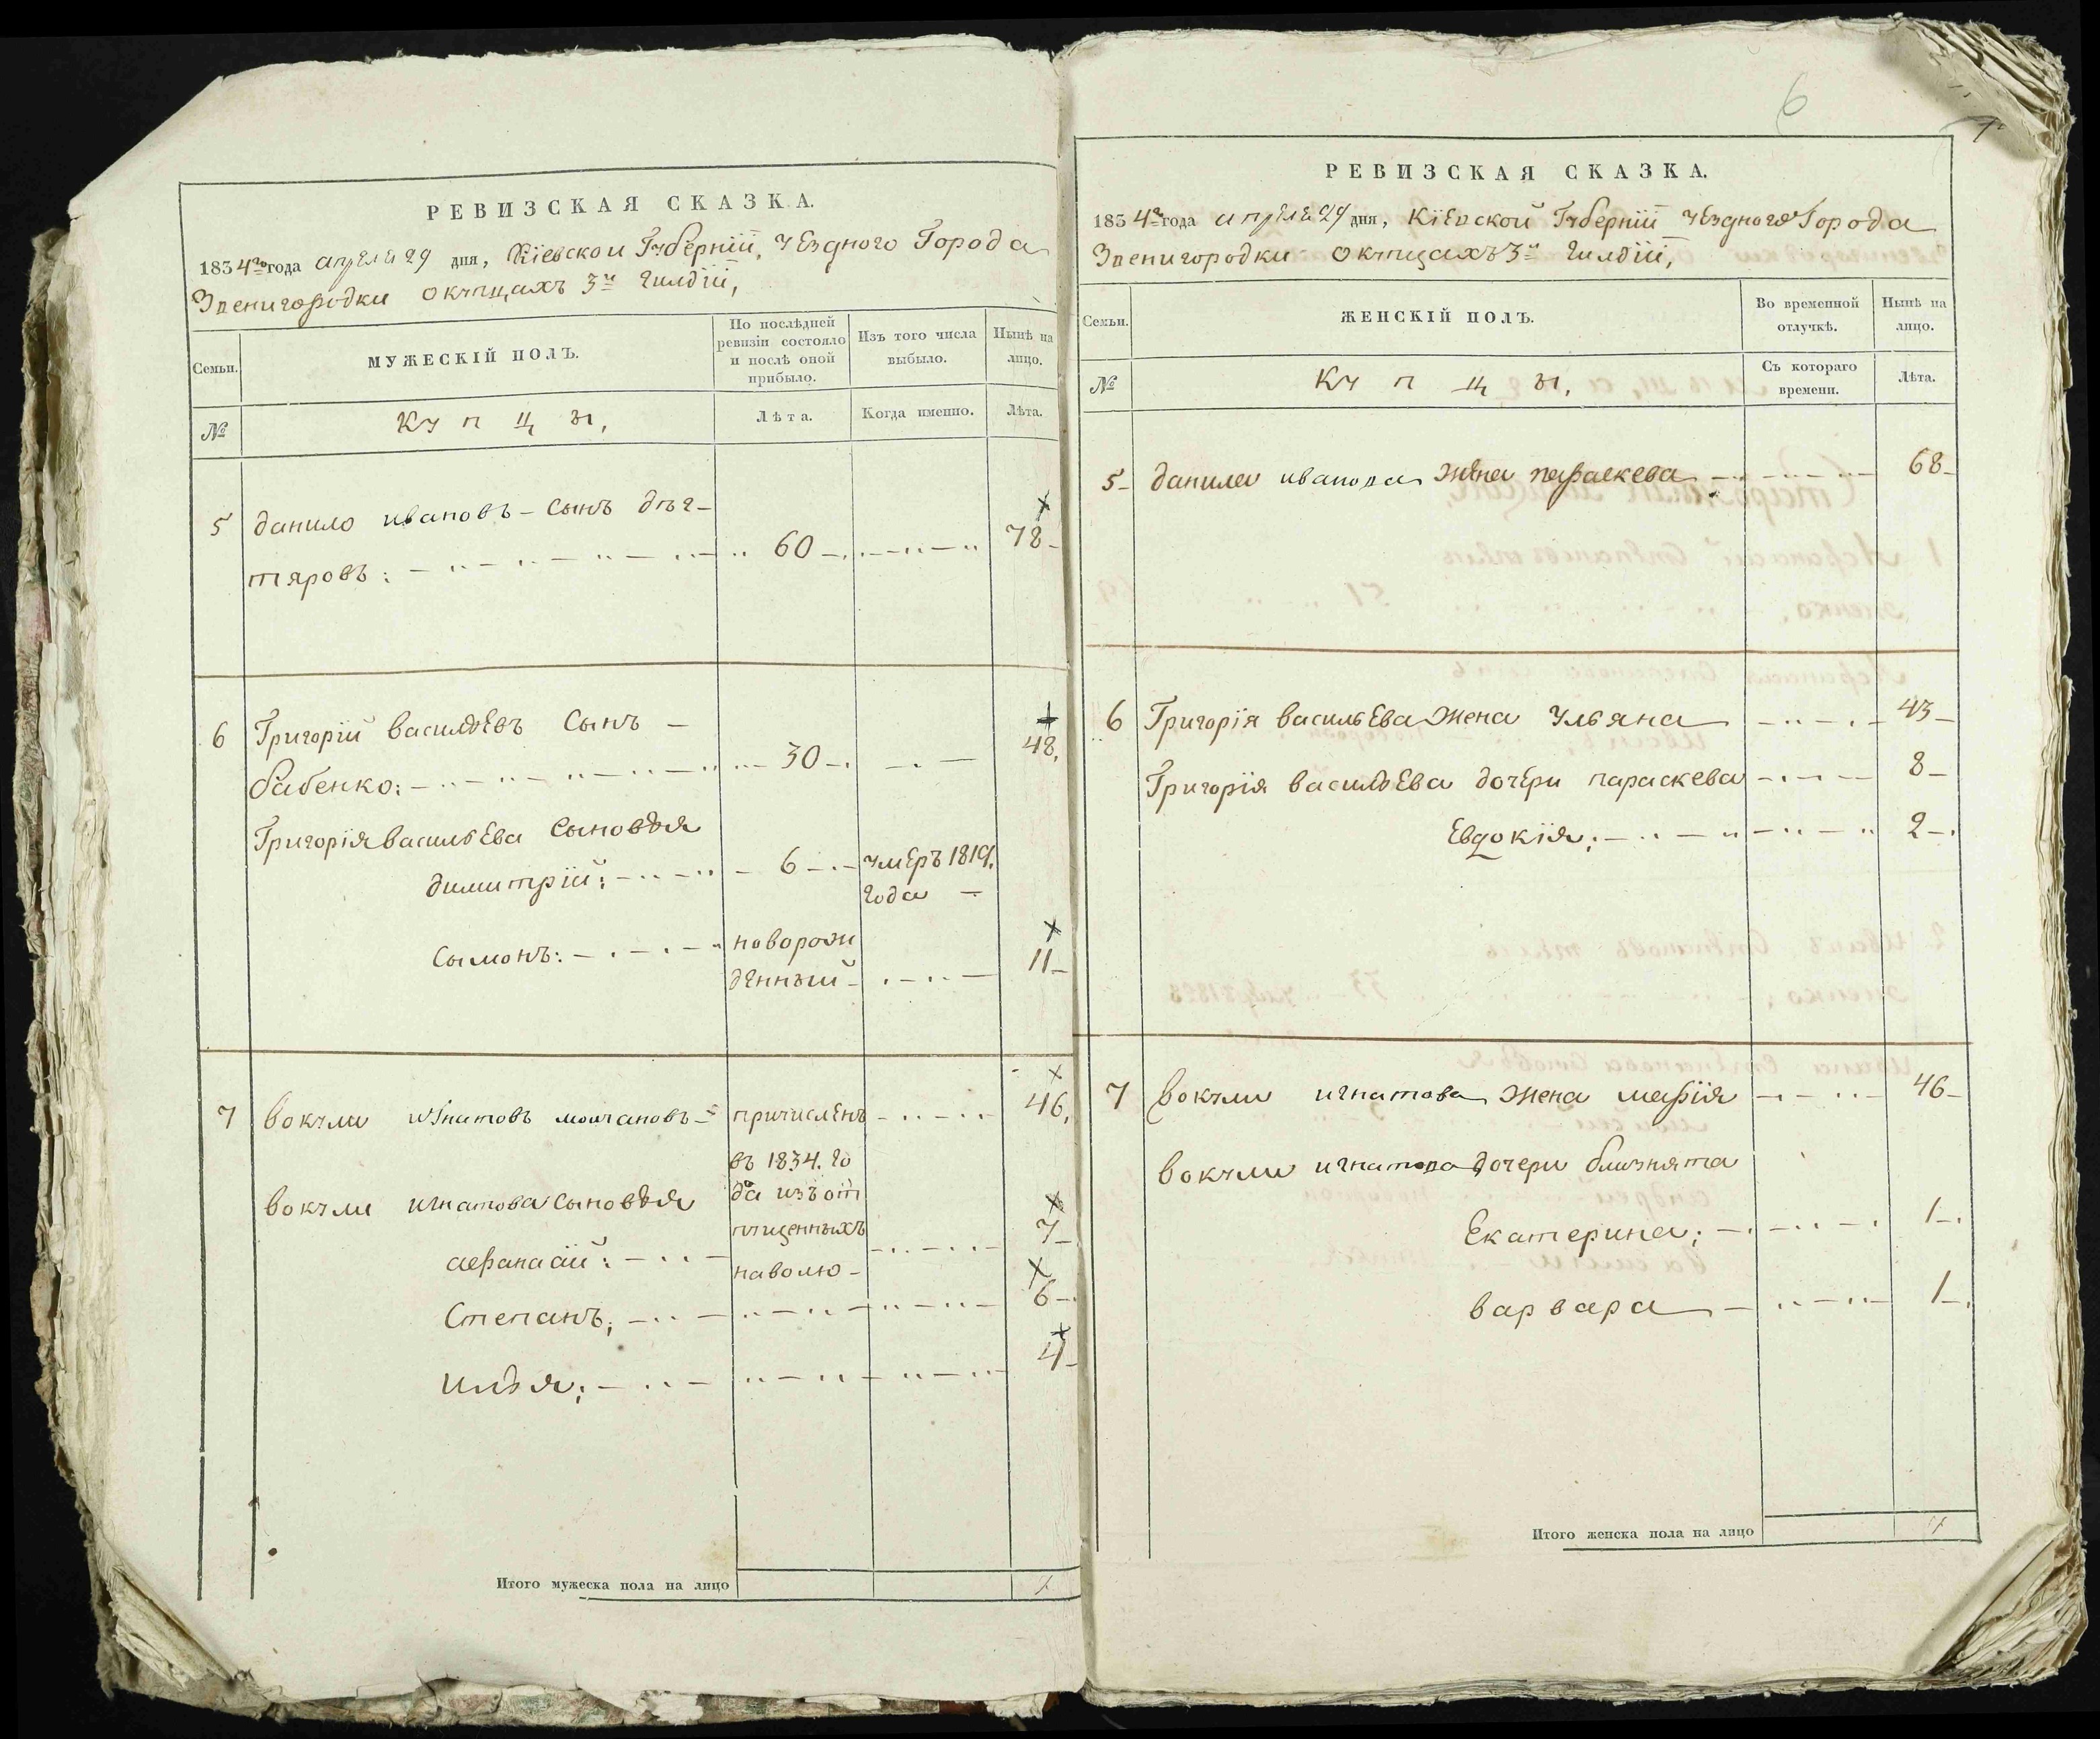 РЕВИЗСКАЯ СКАЗКА.
1834го года апреля 29 дня, Кіевской Губерніи, Уездного Города
Звенигородки окупцахъ 3й Гилдіи,
Семьи.
МУЖЕСКІЙ ПОЛЪ.
По послѣдней ревизіи состояло и послѣ оной прибыло.
Изъ того числа выбыло.
Нынѣ на лицо.
№
Купцы,
Лѣта.
Когда именно.
Лѣта.
5 данило ивановъ - Сынъ дѣг-
тяровъ: 60 78
6 Григорій васильевъ Сынъ -
бабенко: 30 48.
Григорія васильева Сыновья
димитрій: 6 умеръ 1819.
года
Сымонъ: новорож
денный 11
7 вокули игнатовъ молчановъ причисленъ 46.
въ 1834. го
вокули игнатова сыновья да изъ от
пущенныхъ
афанасій: 7
наволю -
Степанъ; 6
илья; 4
Итого мужеска пола на лицо 7
6
РЕВИЗСКАЯ СКАЗКА.
1834го года апреля 29 дня, Кіевской Губерніи Уездного Города
Звенигородки окупцахъ 3й Гилдіи,
Семьи.
ЖЕНСКІЙ ПОЛЪ.
Во временной отлучкѣ.
Нынѣ на лицо.
№
Купцы,
Съ котораго времени.
Лѣта.
5 данила иванова жена параскева 68
6 Григорія васильева жена Ульяна 43
Григорія васильева дочери параскева 8
Евдокія; 2
7 вокули игнатова жена марія 46
вокули игнатова дочери близнята
Екатерина; 1
варвара 1
Итого женска пола на лицо 7